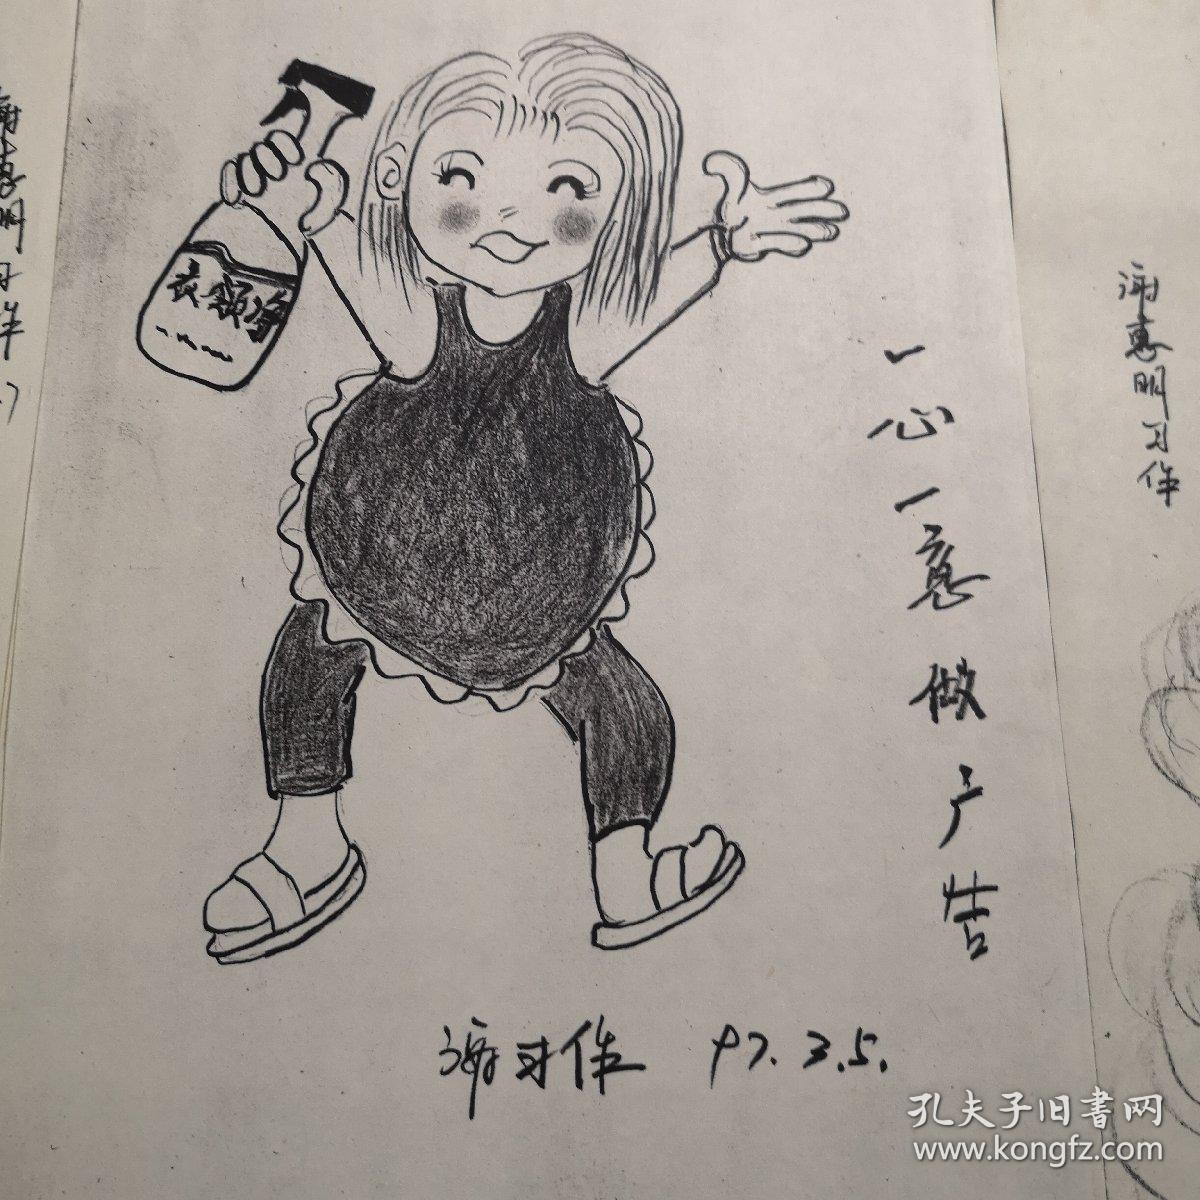 衣领净
一心一意做广告
谢习作 97.3.5.
谢惠明习作
谢惠明习作
孔夫子旧書网
www.kongfz.com